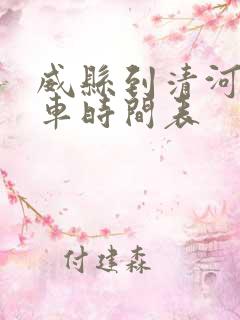 威縣到清河
車時間表
付建森